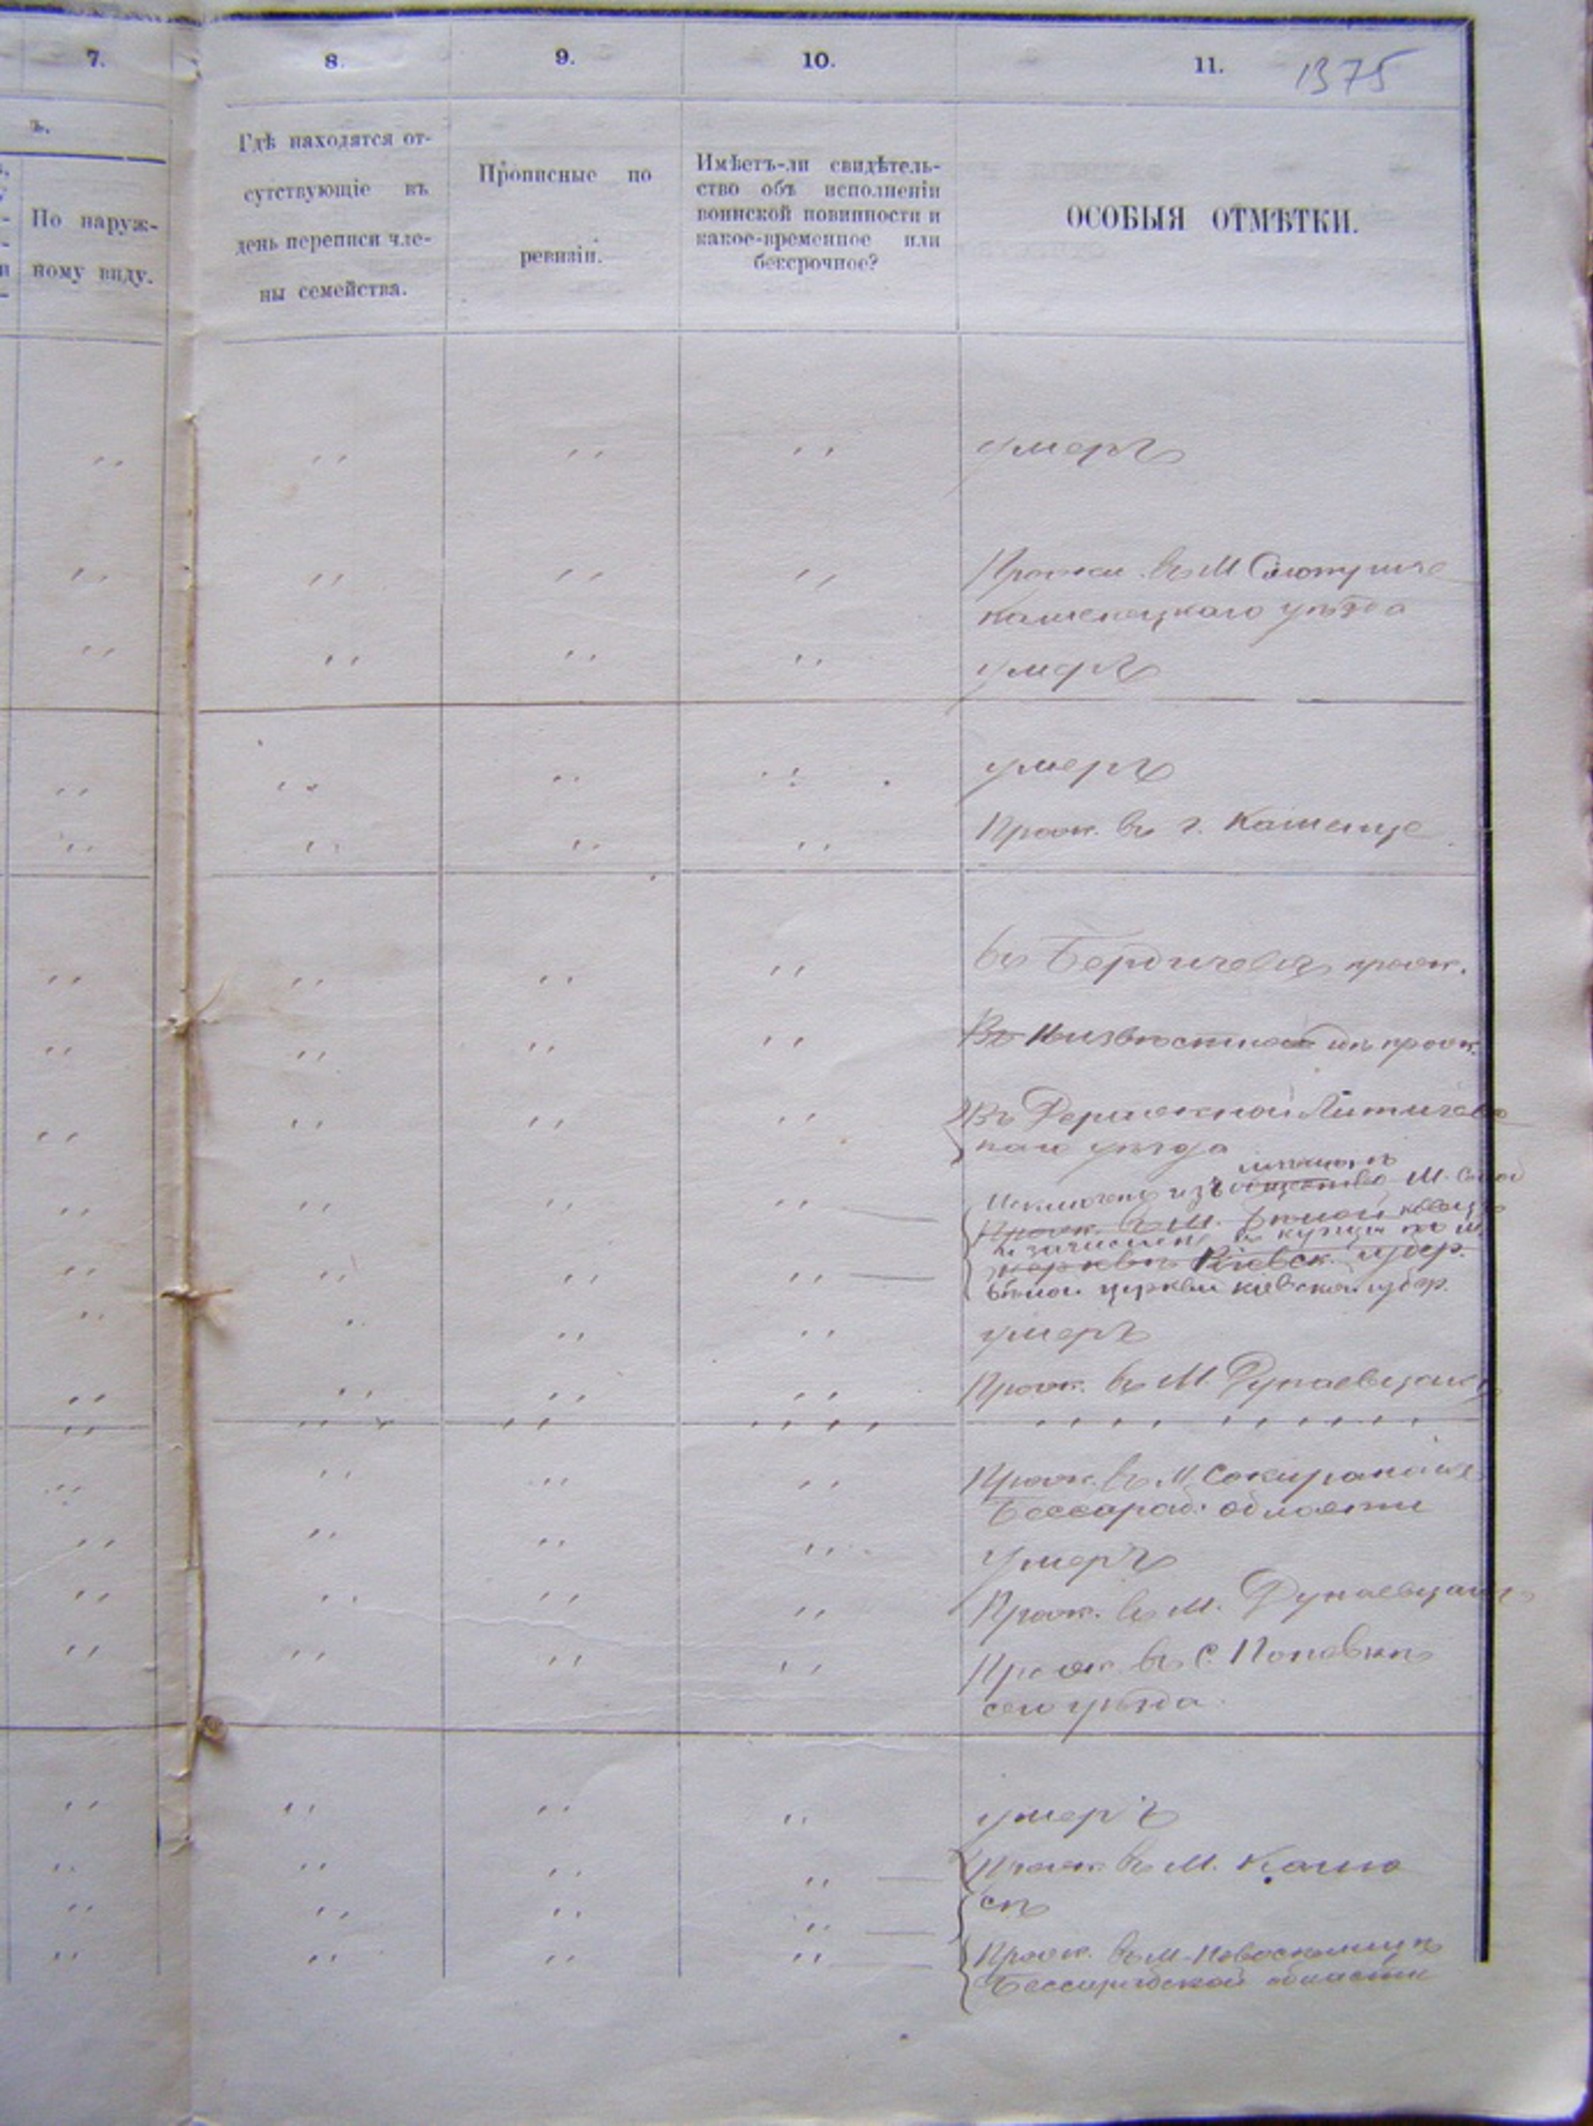 7.
8.
9.
10.
11.
1375
ъ.
По наруж-
ному виду.
Гдѣ находятся от-
сутствующіе въ
день переписи чле-
ны семейства.
Прописные по
ревизіи.
Имѣетъ-ли свидѣтель-
ство объ исполненіи
воинской повинности и
какое-временное или
бексрочное?
ОСОБЫЯ ОТМѢТКИ.
умеръ
въ М
каменецкаго уѣзда
умеръ
умеръ
Прож. въ г. Каменце
въ Бердичевѣ прож.
Въ Неизвѣстно гдѣ прож.
Въ Деражной Литичевс
каго уѣзда
мѣщанъ
Исключенъ изъ общества М.
Прож. въ М. Бѣлой
и зачисленъ въ купцы по м.
церкви Кіевск. губер.
бѣлой церкви кіевской губер.
умеръ
Прож. въ М. Дунаевцахъ
Прож. въ М. Сокиранахъ
Бессараб. области
умеръ
Прож. въ М. Дунаевцахъ
Прож. въ С. Поповкѣ
сего уѣзда
умеръ
Прож. въ М.
Прож. въ М. Новоселицѣ
Бессарабской области